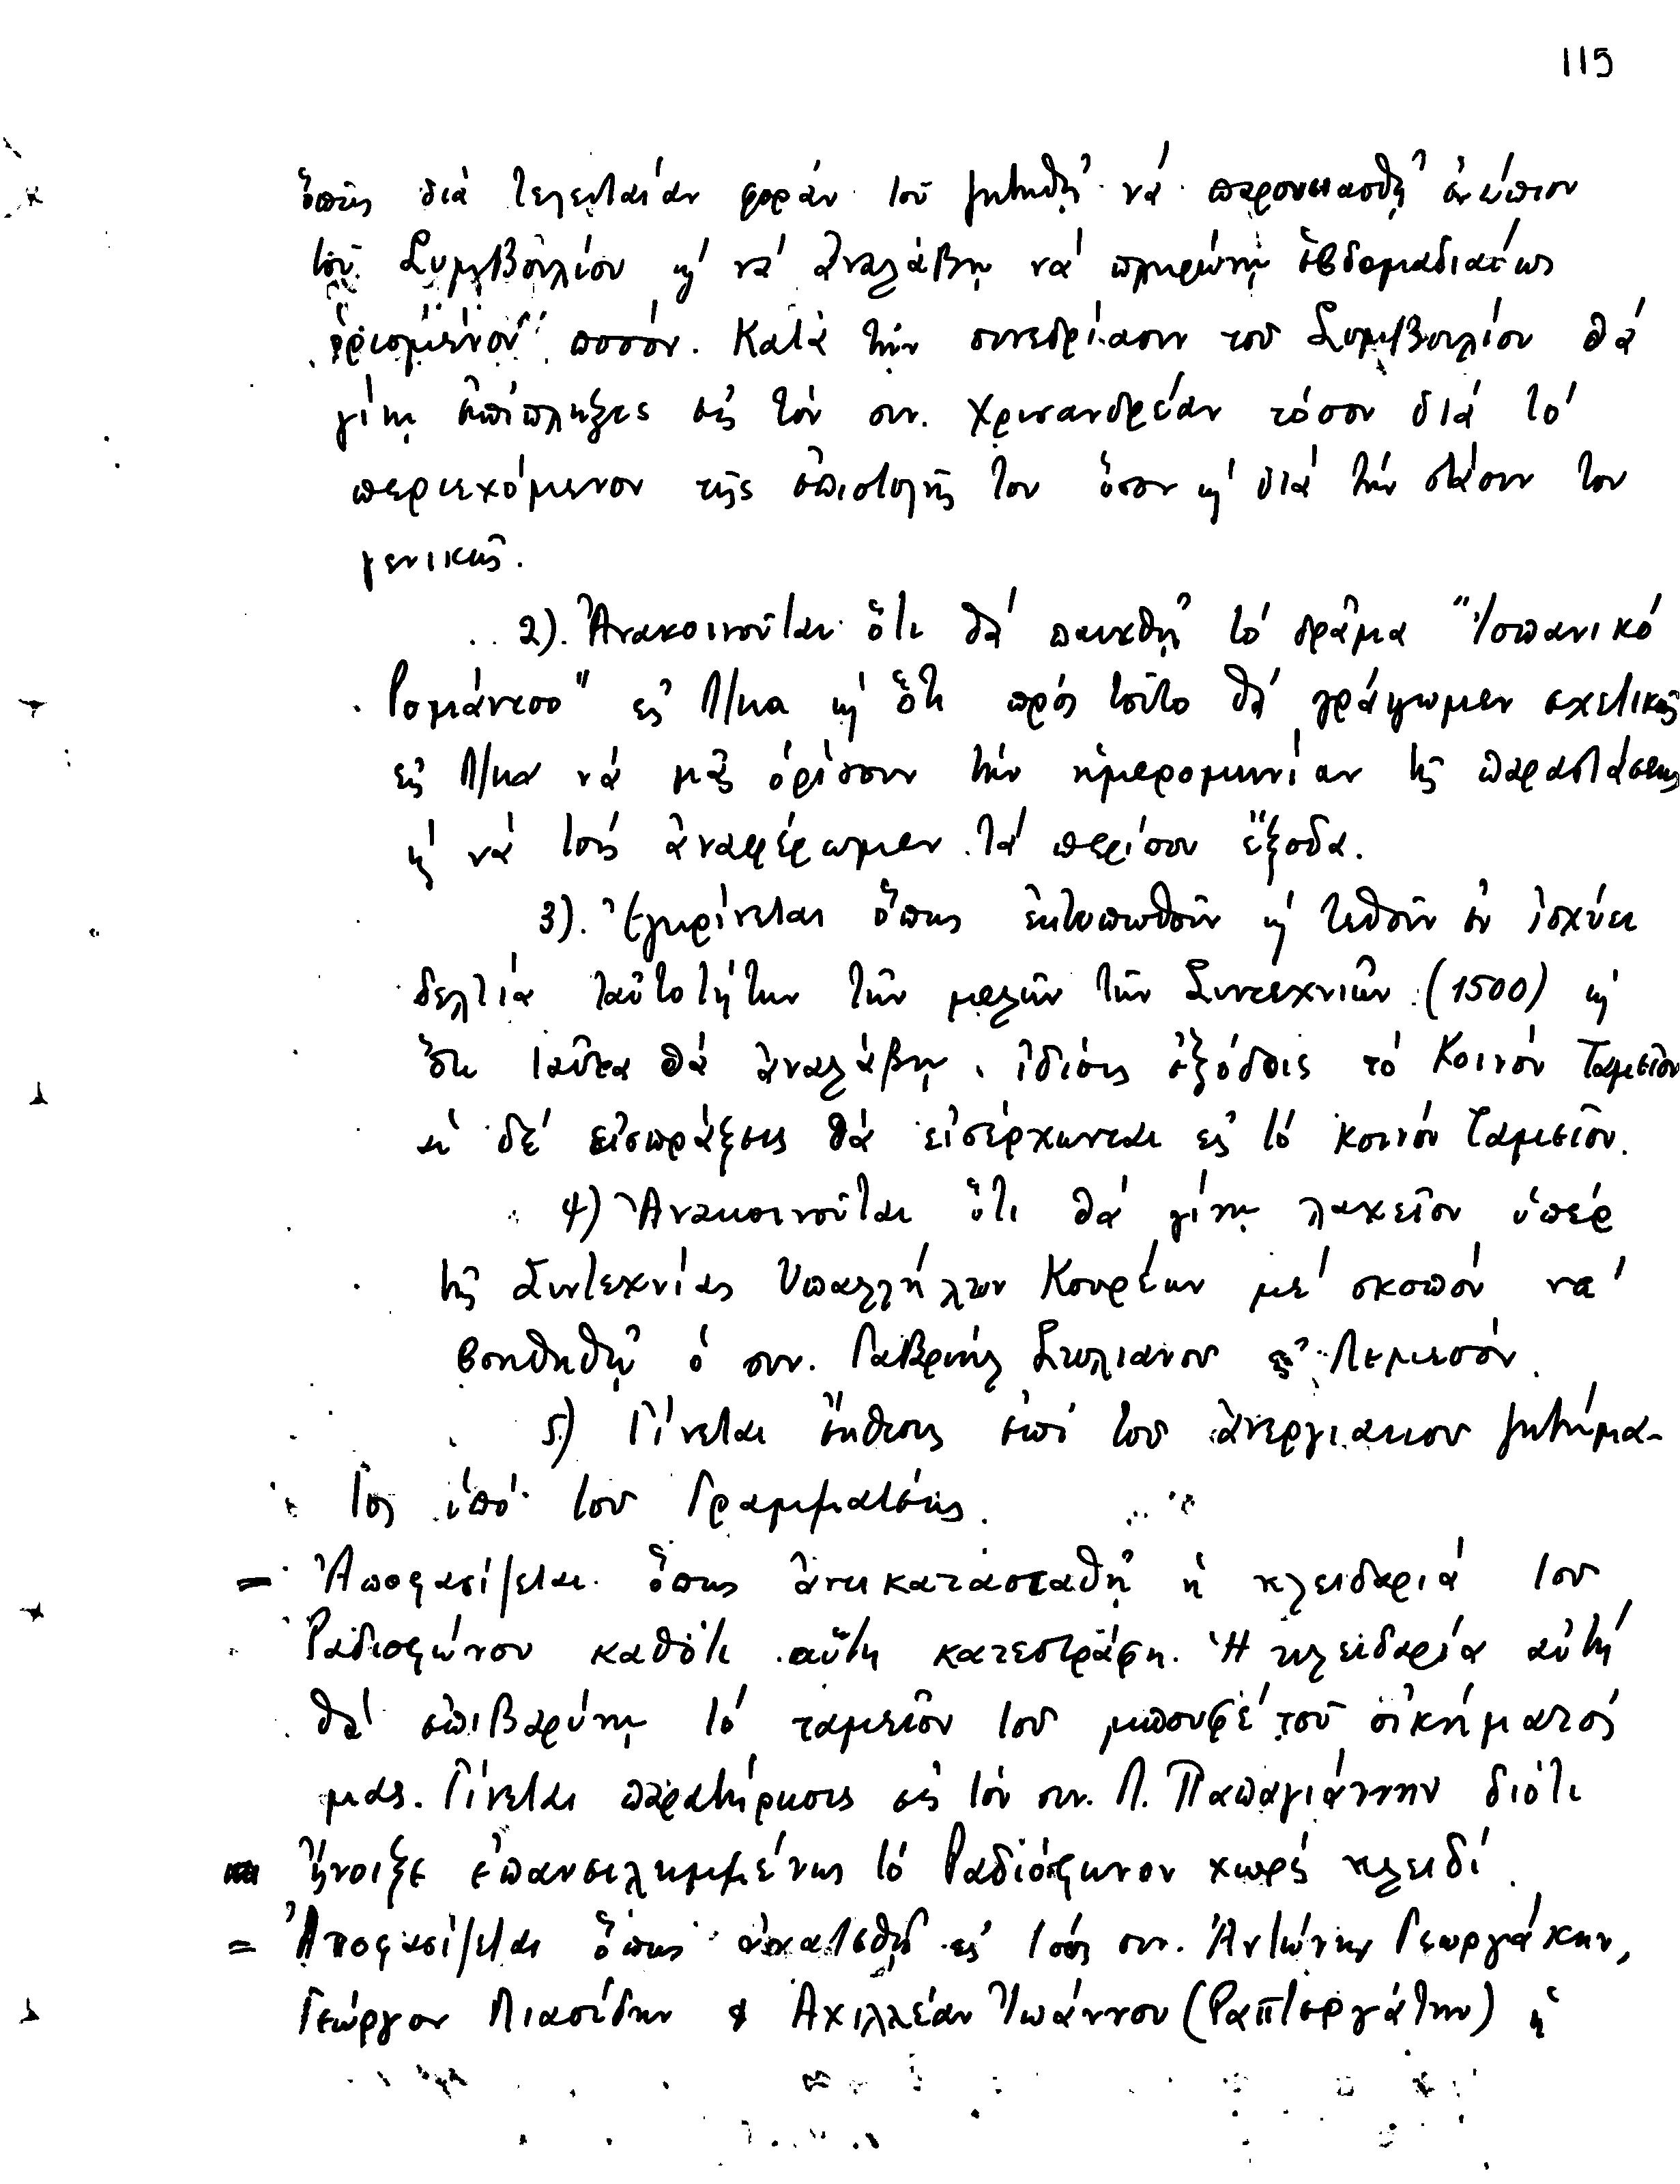 115
ὅπως διά τελευταίαν φοράν τοῦ ζητηθῇ νά παρουσιασθῇ ἐνώπιον
τοῦ Συμβουλίου κ' νά ἀναλάβῃ νά πληρώνῃ ἑβδομαδιαίως
ὁρισμένον ποσόν. Κατά τήν συνεδρίασιν τοῦ Συμβουλίου θά
γίνῃ ἐπίπληξις εἰς τόν συν. Χρισανδρέαν τόσον διά τό
περιεχόμενον τῆς ἐπιστολῆς του ὅσον κ' διά τήν στάσιν του
γενικῶς.
2). Ἀνακοινοῦται ὅτι θά παιχθῇ τό δρᾶμα "Ἱσπανικό
Ρομάντσο" εἰς Λ/κα κ' ὅτι πρός τοῦτο θά γράψωμεν σχετικῶς
εἰς Λ/κα νά μᾶς ὁρίσουν τήν ἡμερομηνίαν τῆς παραστάσεως
κ' νά τούς ἀναφέρωμεν τά περίσου ἔξοδα.
3). Ἐγκρίνεται ὅπως ἐκτυπωθοῦν κ' τεθοῦν ἐν ἰσχύει
δελτία ταὐτοτήτων τῶν μελῶν τῶν Συντεχνιῶν (1500) κ'
ὅτι ταῦτα θά ἀναλάβῃ ἰδίοις ἐξόδοις τό Κοινόν Ταμεῖον
αἱ δέ εἰσπράξεις θά εἰσέρχωνται εἰς τό κοινόν Ταμεῖον.
4) Ἀνακοινοῦται ὅτι θά γίνῃ λαχεῖον ὑπέρ
τῆς Συντεχνίας Ὑπαλλήλων Κουρέων μέ σκοπόν νά
βοηθηθῇ ὁ συν. Γαβριήλ Στυλιανου εἰς Λεμεσόν.
5) Γίνεται ἔκθεσις ἐπί του ἀνεργιακου ζητήμα-
τος ὑπό του Γραμματέως.
= Ἀποφασίζεται ὅπως ἀντικατασταθῇ ἡ κλειδαριά του
Ραδιοφώνου καθότι αὕτη κατεστράφη. Ἡ κλειδαρία αὐτή
θά ἐπιβαρύνῃ τό ταμεῖον του μπουφέ τοῦ οἰκήματός
μας. Γίνεται παρατήρησις εἰς τόν συν. Λ. Παπαγιάννην διότι
ἤνοιξε ἐπανειλημμένως τό Ραδιόφωνον χωρίς κλειδί.
= Ἀποφασίζεται ὅπως ἀνατεθῇ εἰς τούς συν. Ἀντώνην Γεωργάκην,
Γεώργον Πιασίδην & Ἀχιλλέαν Ἰωάννου (Ραπτεργάτην) ἡ